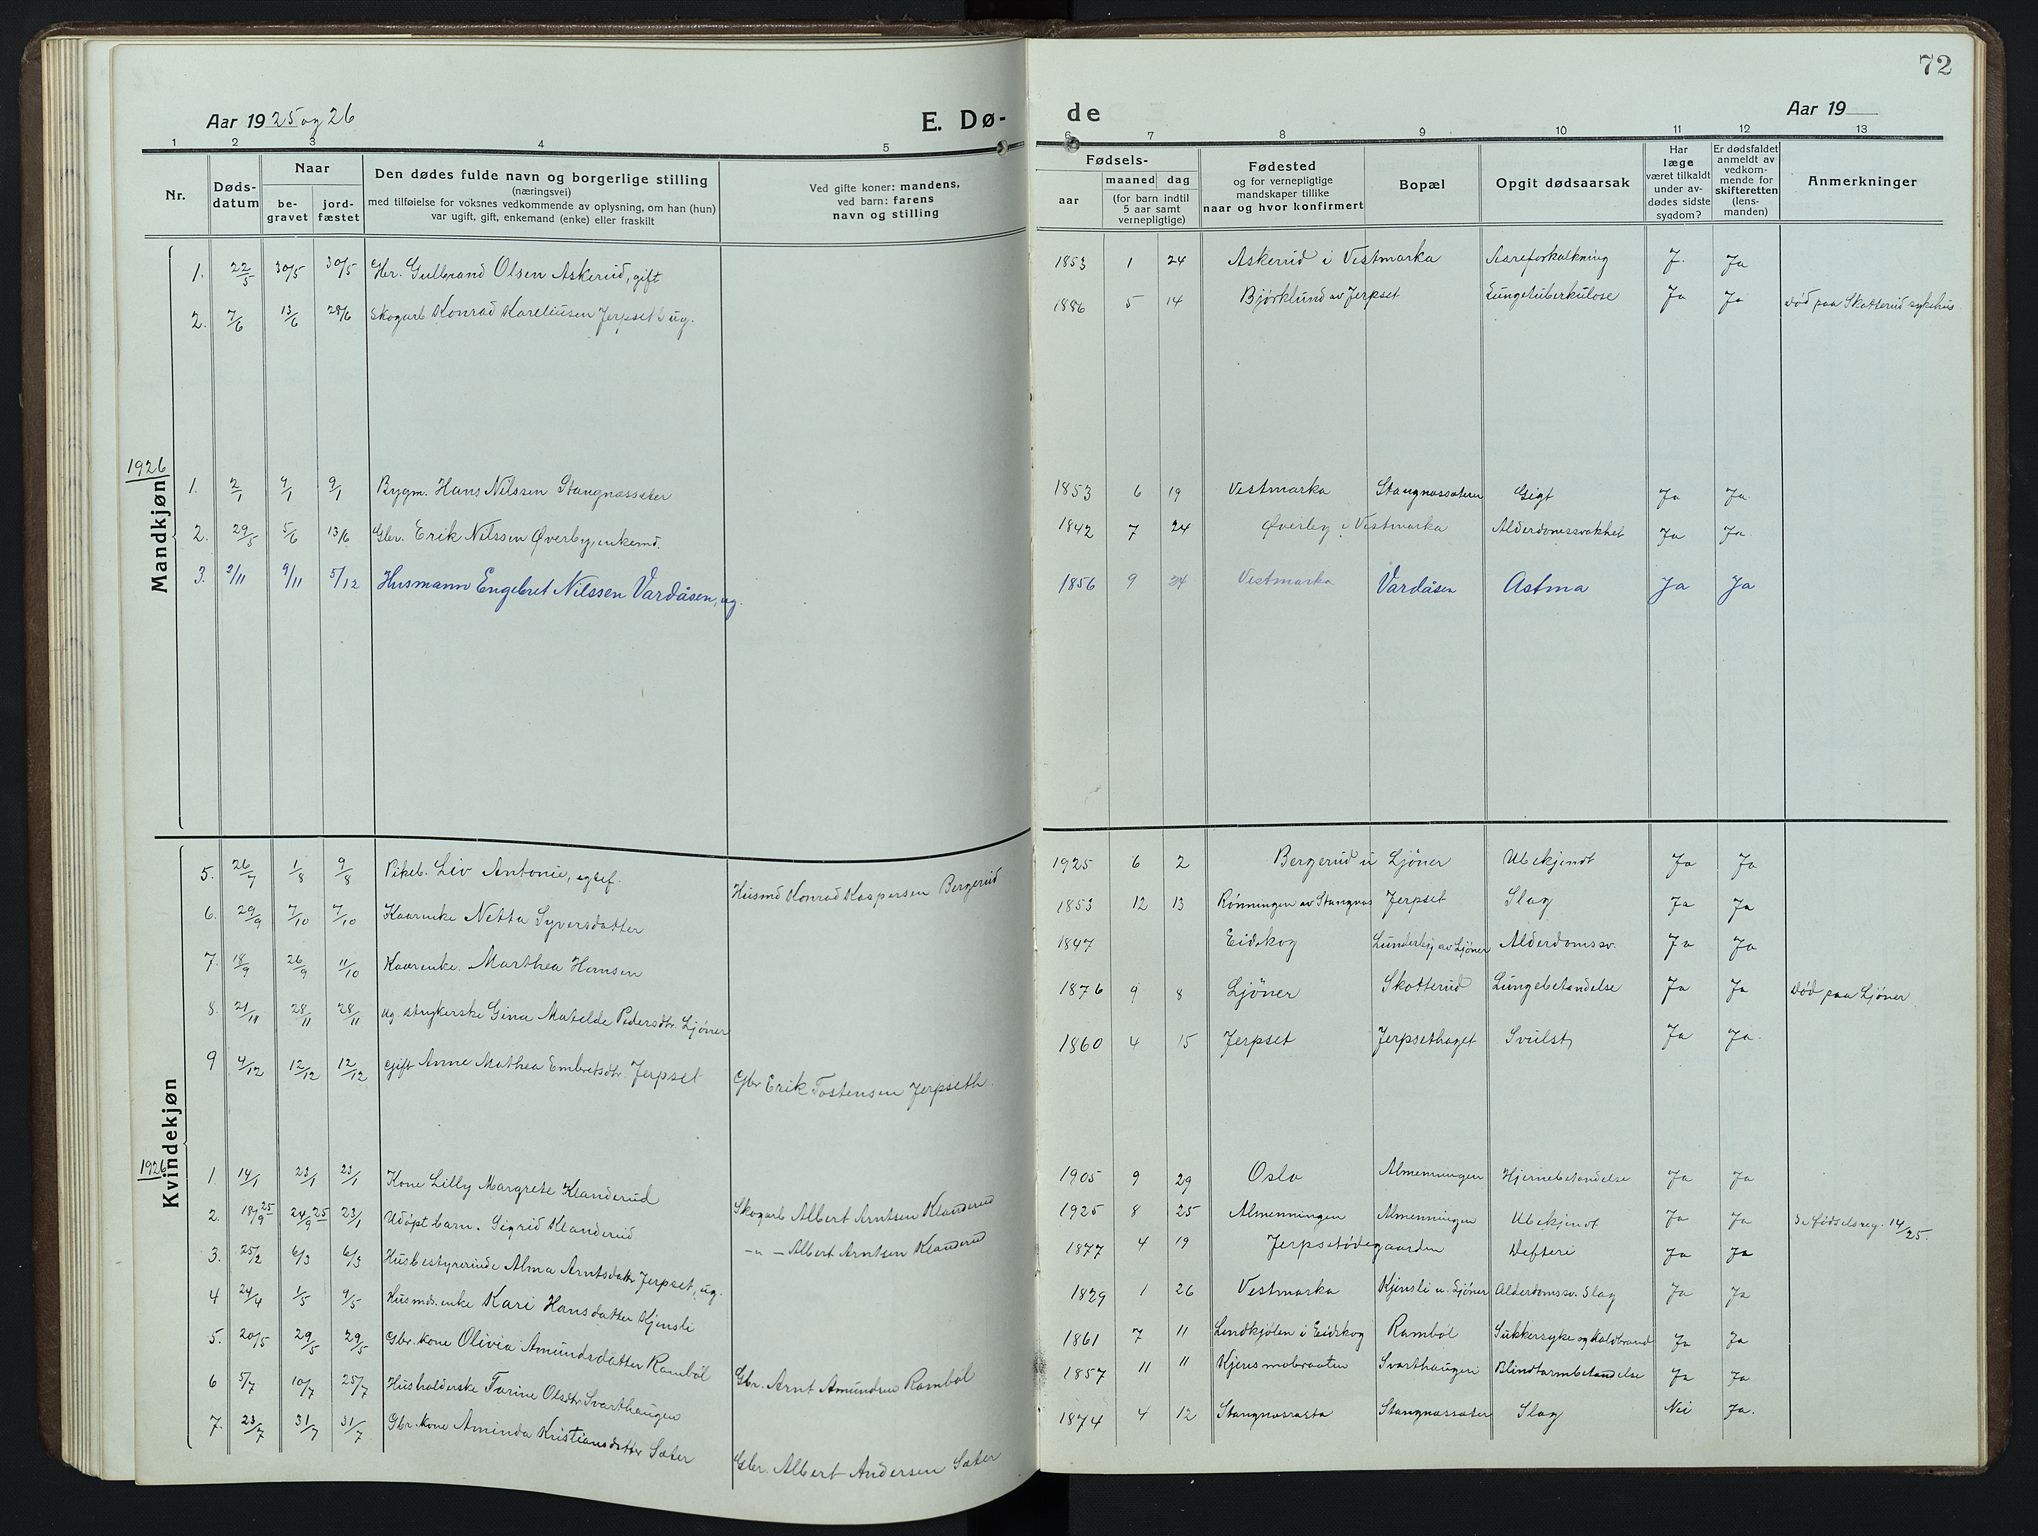 72
Aar 1925 og 26
E. Dø-
de
Aar 19
1 2 3 4 5 6 7 8 9 10 11 12 13
Nr.
Døds-
datum
Naar
be-
gravet
jord-
fæstet
Den dødes fulde navn og borgerlige stilling
(næringsvei)
med tilføielse for voksnes vedkommende av oplysning, om han (hun)
var ugift, gift, enkemand (enke) eller fraskilt
Ved gifte koner: mandens,
ved barn: farens
navn og stilling
Fødsels-
aar
maaned dag
(for barn indtil
5 aar samt
vernepligtige)
Fødested
og for vernepligtige
mandskaper tillike
naar og hvor konfirmert
Bopæl
Opgit dødsaarsak
Har
læge
været tilkaldt
under av-
dødes sidste
sygdom?
Er dødsfaldet
anmeldt av
vedkom-
mende for
skifteretten
(lens-
manden)
Anmerkninger
Mandkjøn
1. 22/5 30/5 30/5 Gbr. Gulbrand Olsen Askerud, gift 1853 1 24 Askerud i Vestmarka Aareforkalkning J. Ja
2. 7/6 13/6 28/6 Skogarb Konrad Kareliusen Jerpset ug. 1886 5 14 Bjørklund av Jerpset Lungetuberkulose Ja Ja Død paa Skotterud sykehus
1926
1. 2/1 9/1 9/1 Bygm. Hans Nilssen Stangnassæter 1853 6 19 Vestmarka Stangnassæteren Gigt Ja Ja.
2. 29/5 5/6 13/6 Gbr. Erik Nilssen Øverby, enkemd. 1842 7 24 Øverby i Vestmarka Alderdomssvakhet Ja Ja.
3. 2/11 9/11 5/12 Husmann Engebret Nilssen Vardåsen, ug. 1856 9 24 Vestmarka Vardåsen Astma Ja Ja
Kvindekjøn
5. 26/7 1/8 9/8 Pikeb. Liv Antonie, egtef. Husmd Konrad Kaspersen Bergerud 1925 6 2 Bergerud u Ljøner Ubekjendt Ja Ja
6. 29/9 7/10 7/10 Kaarenke Netta Syversdatter 1853 12 13 Rønningen av Stangnas Jerpset Slag Ja Ja
7. 18/9 26/9 11/10 Kaarenke. Marthea Hansen 1847 Eidskog Lunderby av Ljøner Alderdomssv. Ja Ja
8. 21/11 28/11 28/11 Ug. strykerske Gina Matelde Pedersdtr. Ljøner 1876 9 8 Ljøner Skotterud Lungebetændelse Ja Ja Død paa Ljøner
9 4/12 12/12 12/12 Gift Anne Mathea Embretsdtr. Jerpset Gbr Erik Tostensen Jerpseth. 1860 4 15 Jerpset Jerpsethaget Svulst Ja Ja.
1926
1 14/1 23/1 23/1 Kone Lilly Margrete Klanderud Skogarb Albert Arntsen Klanderud 1905 9 29 Oslo Almenningen Hjernebetændelse Ja Ja
2. 18/9 25 24/9 25 23/1 Udøpt barn. Sigrid Klanderud - " - Albert Arntsen Klanderud 1925 8 25 Almenningen Almenningen Ubekjendt Ja Ja Se fødselsreg. 14/25.
3. 25/2 6/3 6/3 Husbestyrerinde Alma Arntsdatter Jerpset, ug. 1877 4 19 Jerpsetødegaarden Difteri Ja Ja
4 24/4 1/5 9/5 Husmds.enke Kari Hansdatter Kjensli 1829 1 26 Vestmarka Kjensli u. Ljøner Alderdomssv. Slag Ja Ja
5. 20/5 29/5 29/5 Gbr. kone Olivia Amundsdatter Rambøl Gbr. Arnt Amundsen Rambøl 1861 7 11 Lindkjølen i Eidskog Rambøl Sukkersyke og Koldbrand Ja Ja
6 5/7 10/7 25/7 Husholderske Turine Olsdtr Svarthaugen 1857 11 11 Kjensmobraaten Svarthaugen Blindtarmbetændelse Ja Ja
7. 23/7 31/7 31/7 Gbr. kone Aminda Kristiansdatter Sæter Gbr. Albert Andersen Sæter 1874 4 12 Stangnæssæter Slag Nei Ja.